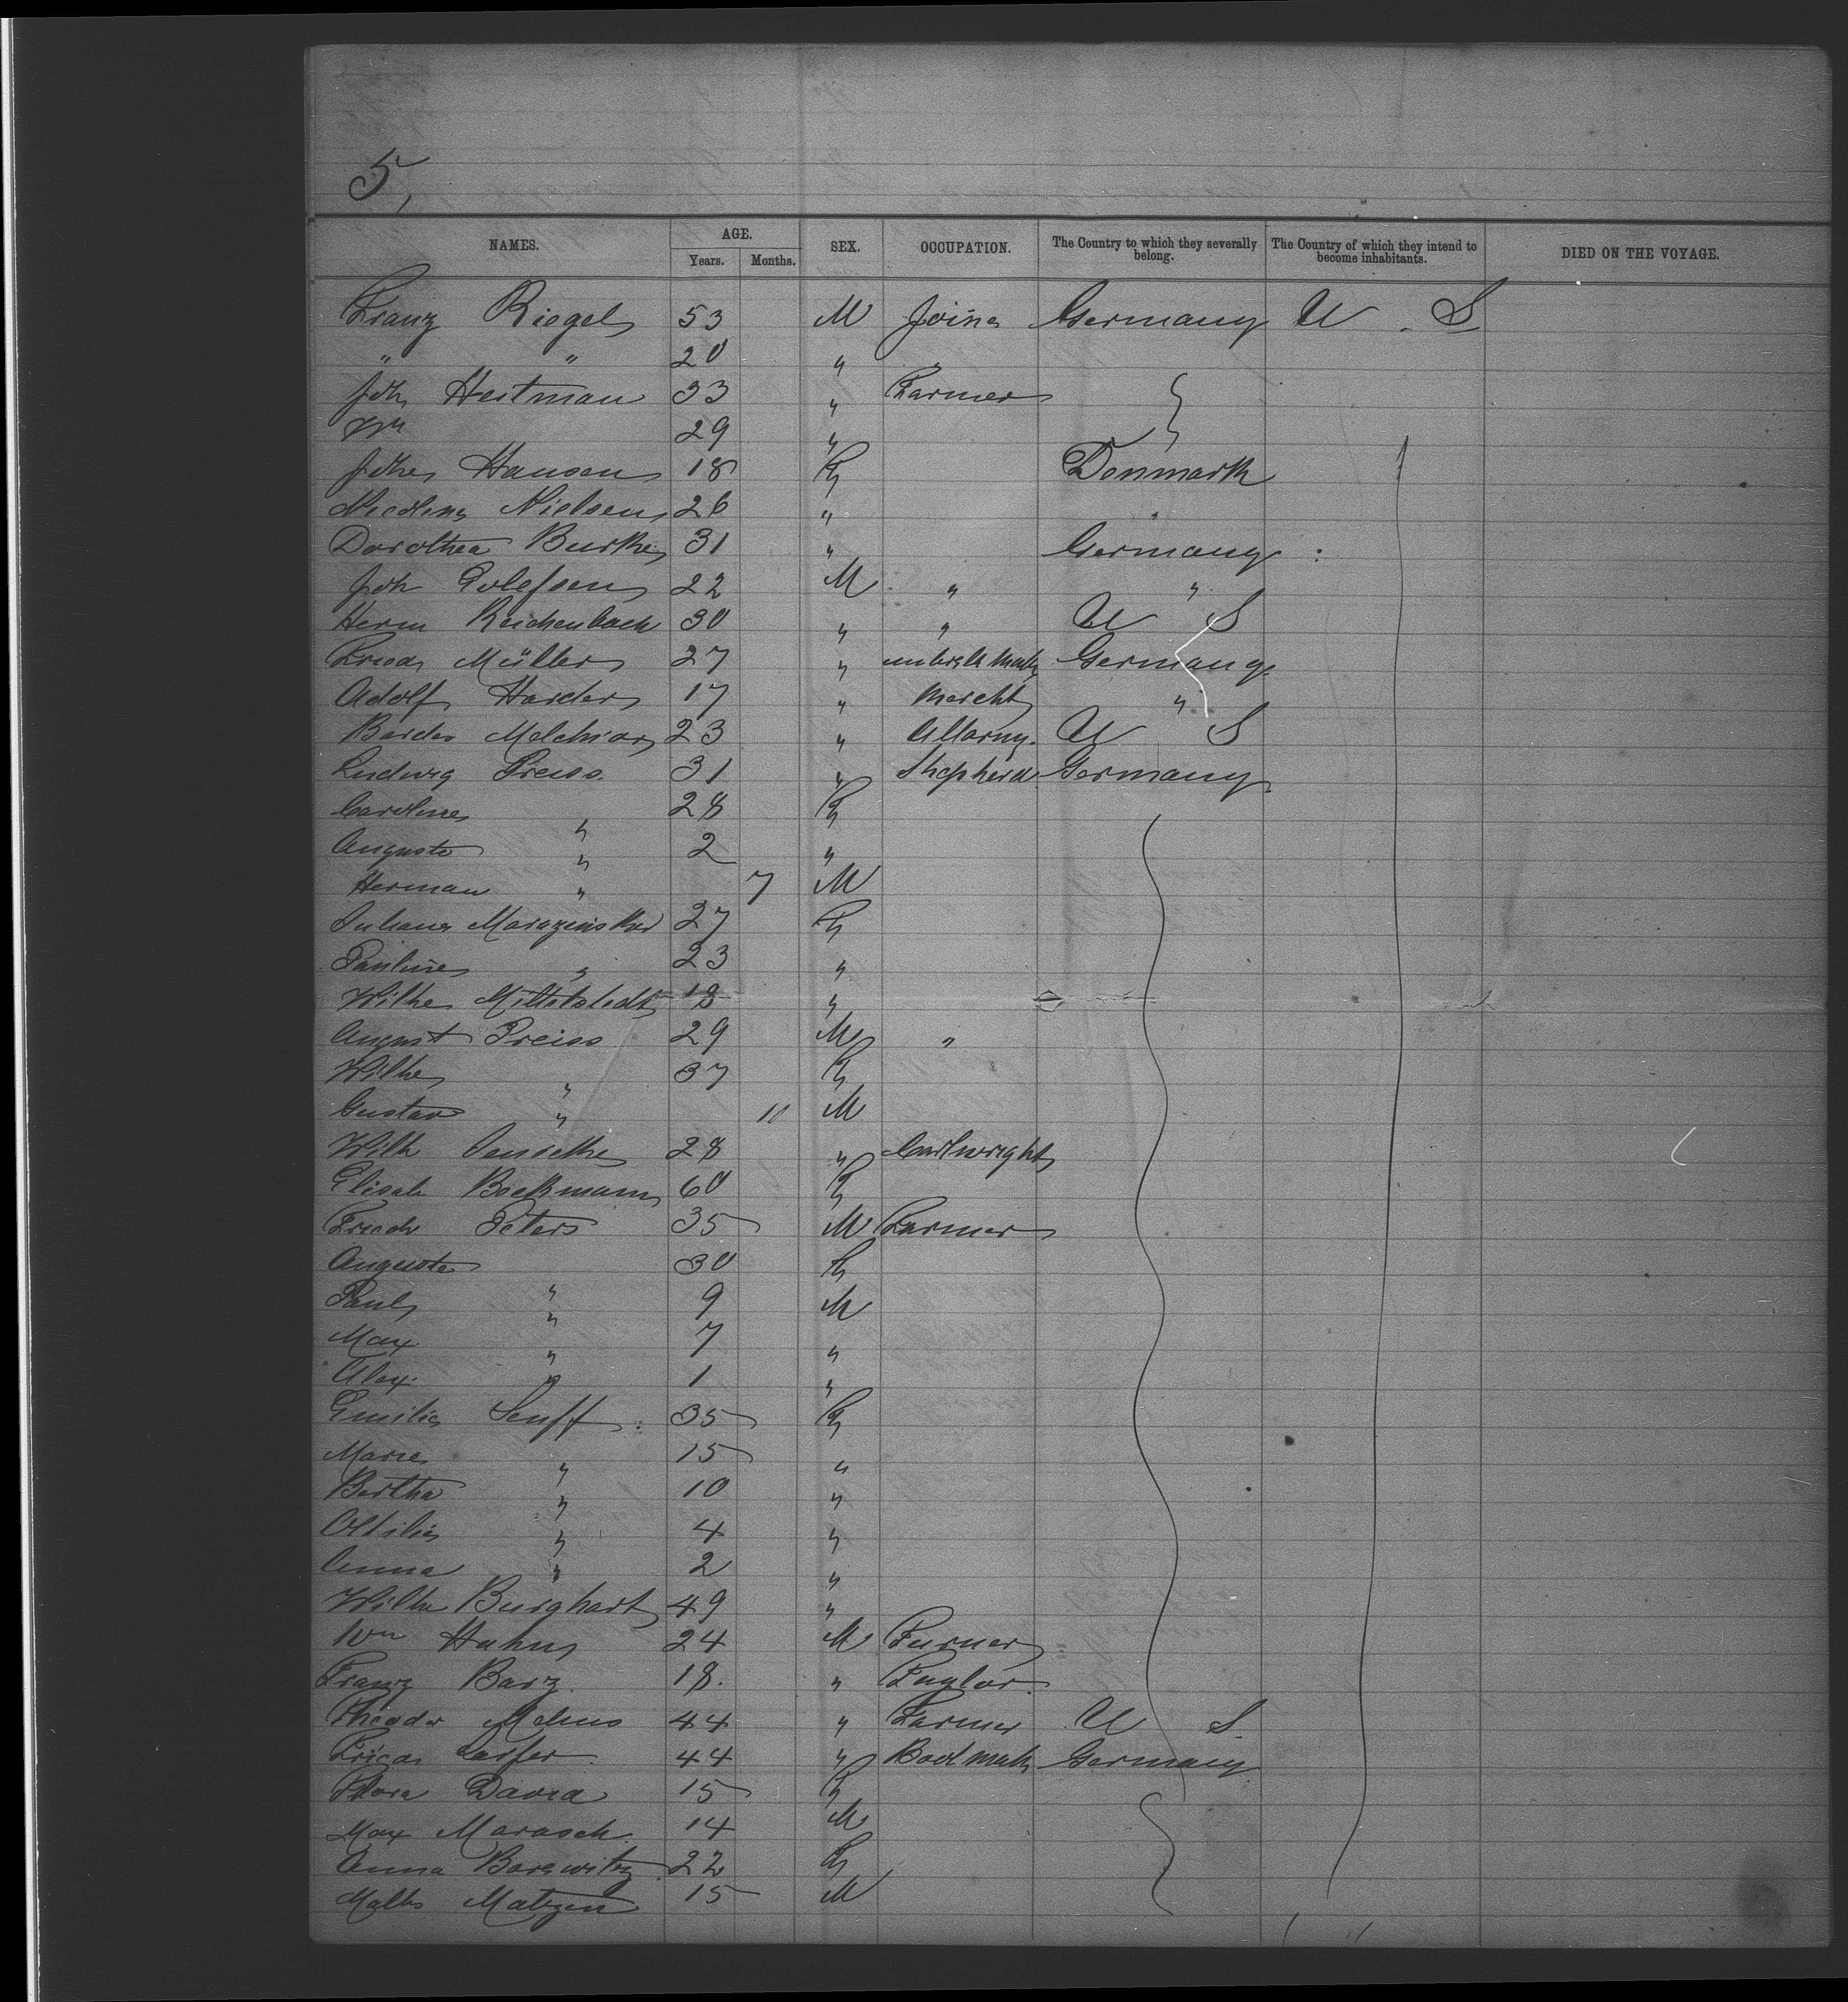 5,
NAMES. AGE. SEX. OCCUPATION. The Country to which they severally belong. The Country of which they intend to become inhabitants. DIED ON THE VOYAGE.
Years. Months.
Franz Riegel 53 M Germany U. S
" " 20 "
Joh Heitman 33 " Farmer
Wm 29 "
Hansen 18 F Denmark
Nielsen 26 " "
Dorothea 31 " Germany
Joh 22 M " "
Herm Reichenbach 30 " " U S
Müller 27 " Germany
Adolf Harder 17 " Mercht "
Melchior 23 " U S
Ludwig Preiss 31 " Shepherd Germany
Caroline " 28 F
Auguste " 2 "
Herman " 7 M
27 F
Pauline " 23 "
Wilhe Mittelstedt 18 "
August Preiss 29 M "
Wilhe " 37 F
Gustav " 11 M
Wilh 28 " Cartwright
Elisab 60 F
Friedr Peters 35 M Farmer
Auguste " 30 F
Paul " 9 M
Max " 7 "
Alex " 1 "
Emilie Senff 35 F
Marie " 15 "
Bertha " 10 "
Ottilie " 4 "
Anna " 2 "
Wilhe Burghart 49 "
Wm Hahn 24 M
Franz Barz 18. " Taylor
Theodor 44 " Farmer U S
44 " Germany
David 15 F
Max Marasch 14 M
Anna 22 F
Matzen 15 M